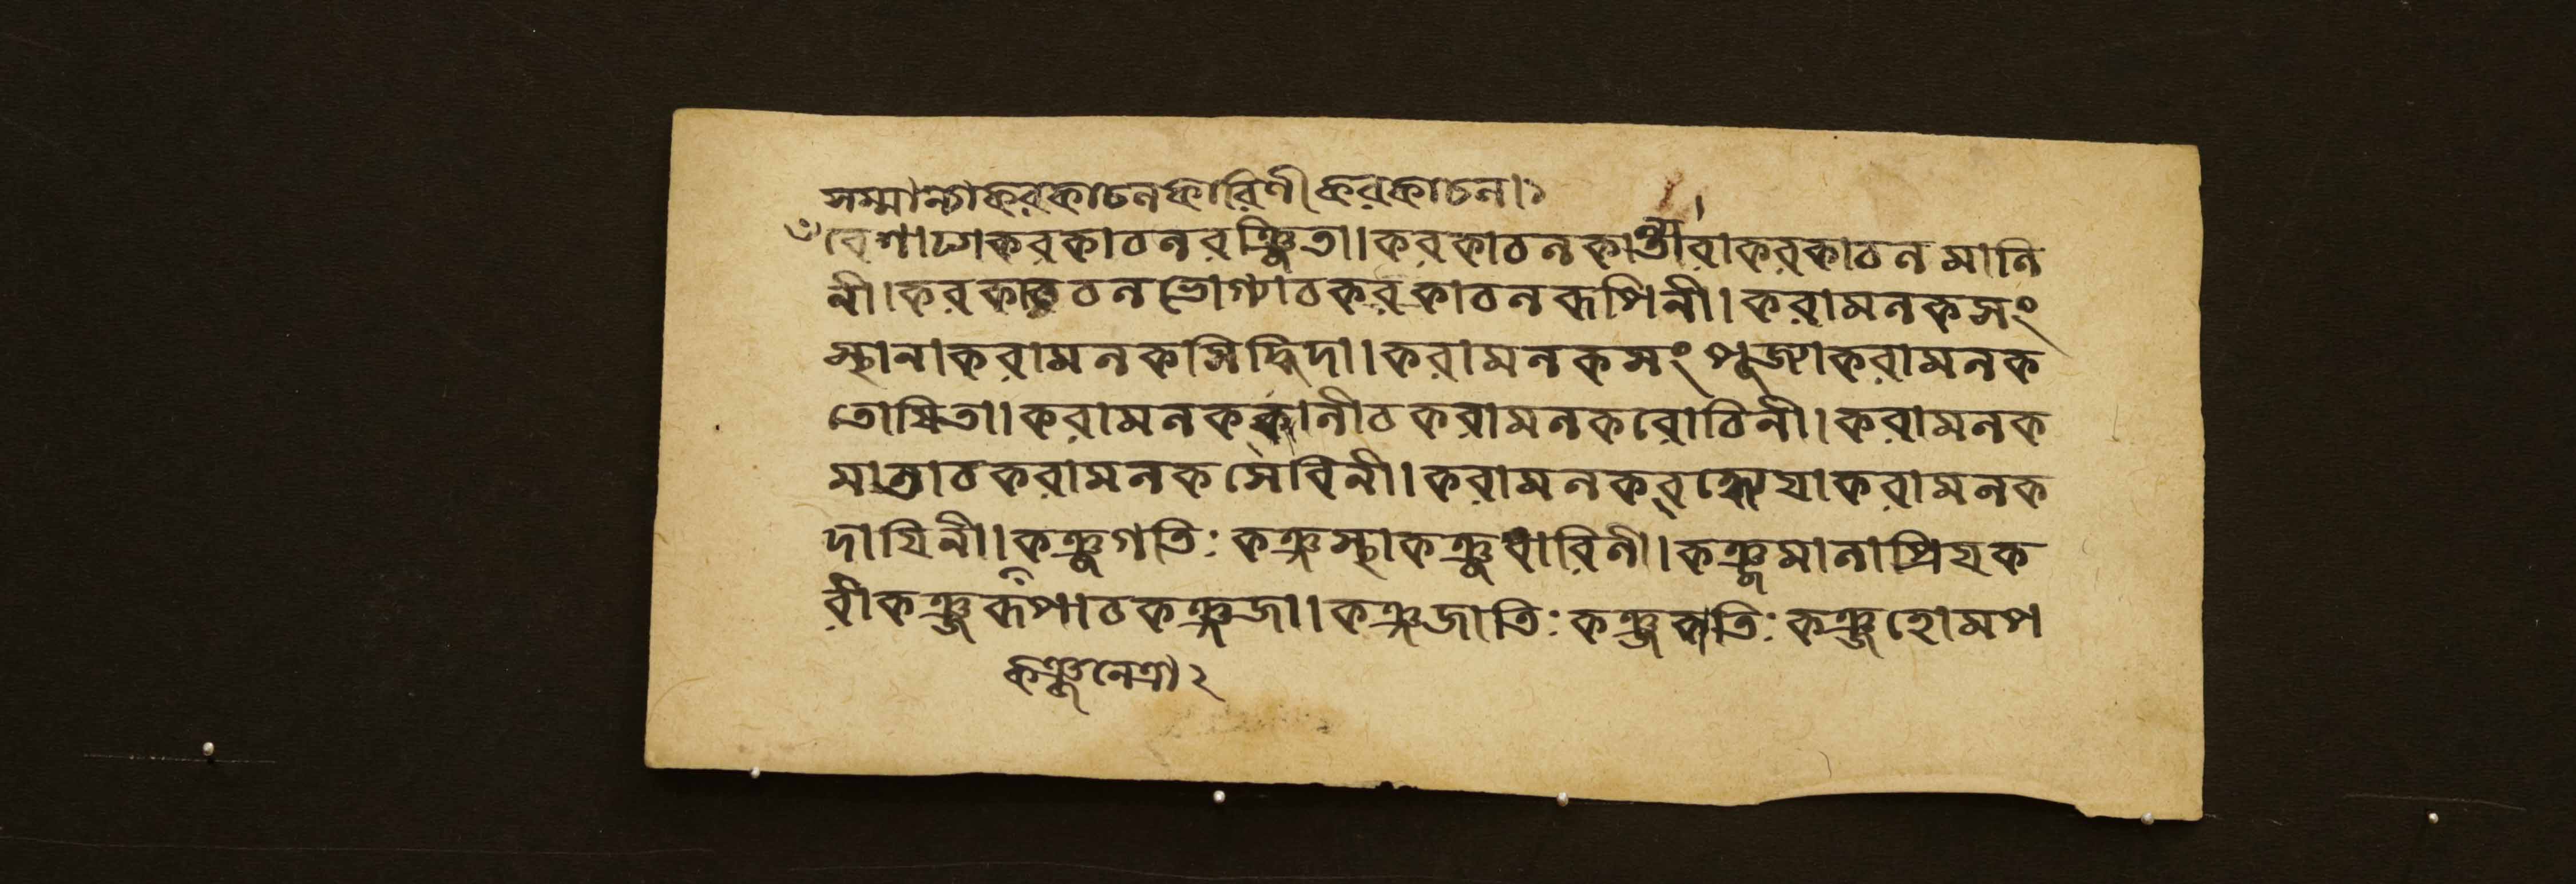 সম্মান্যাকরকাচনকারিণী করকাচন।১
বেশাঢ্যাকরকাচনরঞ্জিতা।করকাচনকান্তারাকরকাচনমানি
নী।করকাচনভোগ্যাচকরকাচনরূপিনী।করামলকসং
স্থানাকরামলকসিদ্ধিদা।করামলকসংপূজ্যাকরামলক
তোষিতা।করামলককালীচকরামলকরোচিনী।করামলক
মাত্রাচকরামলকসেবিনী।করামলকবদ্ধ্যেয়াকরামলক
দায়িনী।কঞ্জগতিঃ কঞ্জস্থাকঞ্জধারিনী।কঞ্জমালাপ্রিয়ক
রীকঞ্জরূপাচকঞ্জজা।কঞ্জজাতিঃ কঞ্জকাতিঃ কঞ্জহোমপ
কঞ্জনেত্রা২